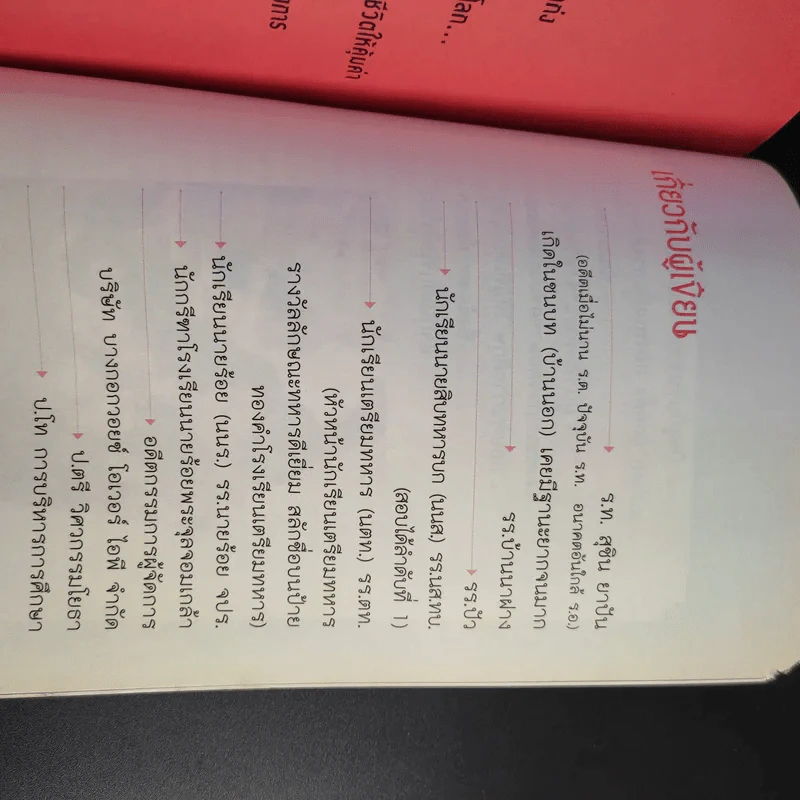 เกี่ยวกับผู้เขียน
ร.ท. สุชิน ยาปัน
(อดีตเมื่อไม่นาน ร.ต. ปัจจุบัน ร.ท. อนาคตอันใกล้ ร.อ.)
เกิดในชนบท (บ้านนอก) เคยมีฐานะยากจนมาก
รร.บ้านนาฝาง
รร.ปัว
นักเรียนนายสิบทหารบก (นนส.) รร.นส.ทบ.
(สอบได้ลำดับที่ 1)
นักเรียนเตรียมทหาร (นตท.) รร.ตท.
(หัวหน้านักเรียนเตรียมทหาร
รางวัลลักษณะทหารดีเยี่ยม สลักชื่อบนป้าย
ทองคำโรงเรียนเตรียมทหาร)
นักเรียนนายร้อย (นนร.) รร.นายร้อย จปร.
นักกรีฑาโรงเรียนนายร้อยพระจุลจอมเกล้า
อดีตกรรมการผู้จัดการ
บริษัท บางกอกวอยซ์ โอเวอร์ ไอพี จำกัด
ป.ตรี วิศวกรรมโยธา
ป.โท การบริหารการศึกษา
โลก...
ชีวิตให้คุ้มค่า